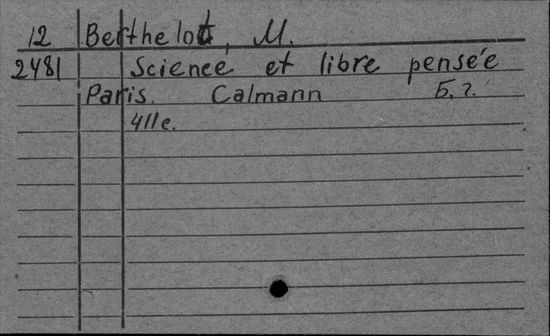 12 Berthelot, M.
2481 Science et libre pensée
Paris. Calmann Б.г.
411c.